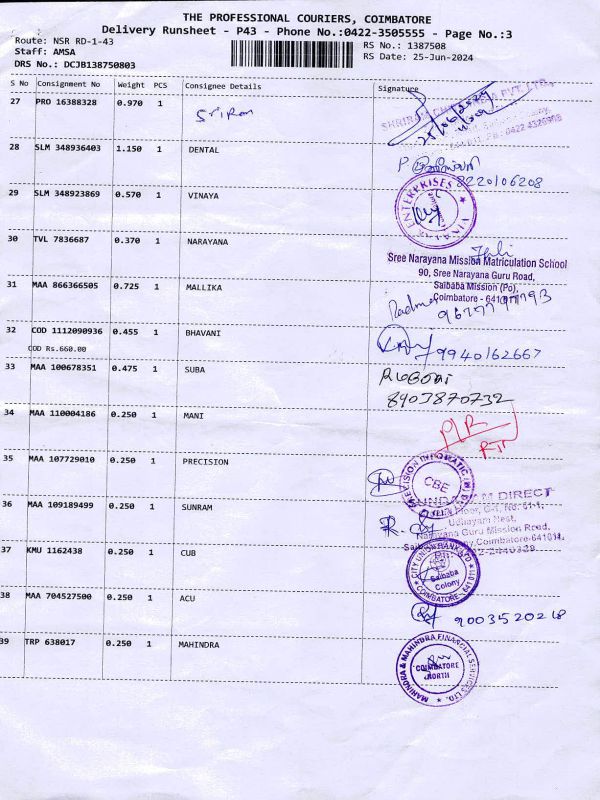 THE PROFESSIONAL COURIERS, COIMBATORE
Delivery Runsheet - P43 - Phone No.:0422-3505555 - Page No.:3
Route: NSR RD-1-43
RS No.: 1387508
Staff: AMSA
RS Date: 25-Jun-2024
DRS No.: DCJB138750803
S No Consignment No Weight PCS Consignee Details Signature
27 PRO 16388328 0.970 1 Sriram
25/06/2024
28 SLM 348936403 1.150 1 DENTAL
8220106208
29 SLM 348923869 0.570 1 VINAYA
ENTERPRISES
30 TVL 7836687 0.370 1 NARAYANA
Sree Narayana Mission Matriculation School
90, Sree Narayana Guru Road,
Saibaba Mission (Po),
Coimbatore - 641011
31 MAA 866366505 0.725 1 MALLIKA
Padma
32 COD 1112090936 0.455 1 BHAVANI
COD Rs.660.00
9940162667
33 MAA 100678351 0.475 1 SUBA
8903870732
34 MAA 110004186 0.250 1 MANI
35 MAA 107729010 0.250 1 PRECISION
CBE
36 MAA 109189499 0.250 1 SUNRAM
Udhayam Nest,
Narayana Guru Mission Road,
37 KMU 1162438 0.250 1 CUB
CITY UNION BANK LTD
Saibaba
Colony
COIMBATORE
38 MAA 704527500 0.250 1 ACU
9003520218
39 TRP 638017 0.250 1 MAHINDRA
MAHINDRA & MAHINDRA FINANCIAL SERVICES LTD.
COIMBATORE
NORTH